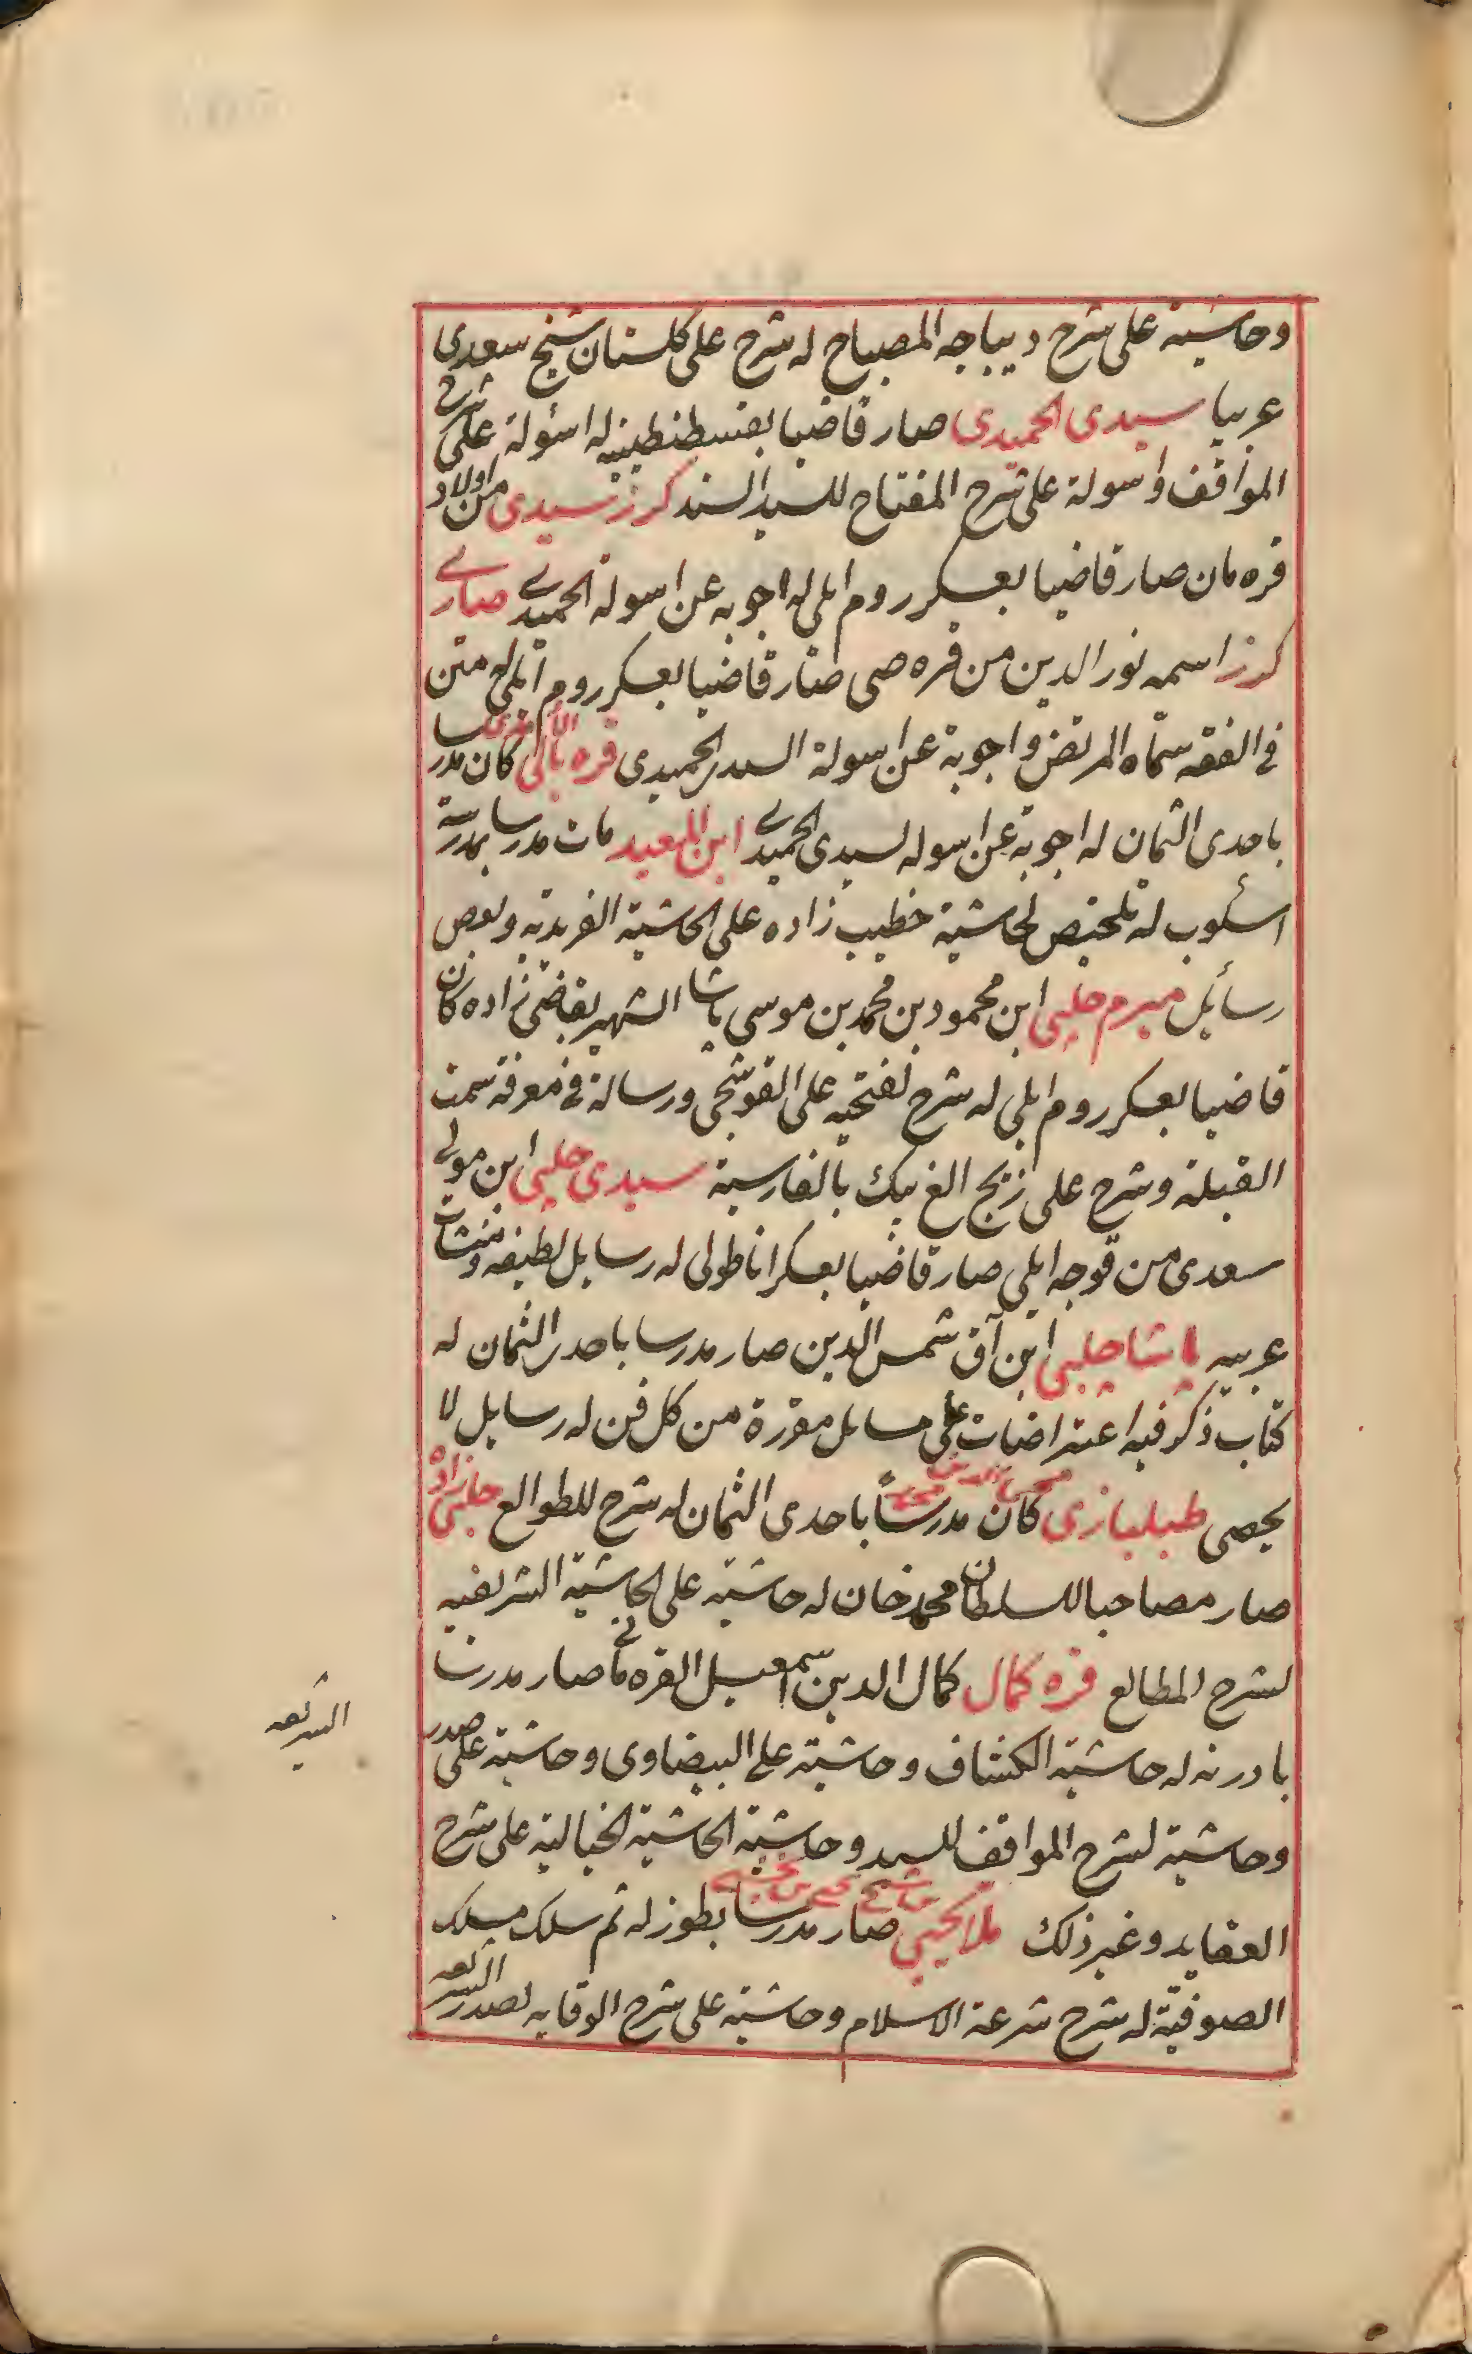 وحاشية على شرح ديباجه المصباح له شرح على كلستان شيخ سعدى
عربيا سيدى الحميدى صار قاضيا بقسطنطينيه له اسئولة على شرح
المواقف واسولة على شرح المفتاح للسيد السند كرز سيدى من اولاد
قره مان صار قاضيا بعسكر روم ايلى له اجوبه عن اسولة الحميدى صارى
كرز اسمه نور الدين من قره صى صار قاضيا بعسكر روم ايلى له متن
فى الفقه سماه المرتضى واجوبة عن اسولة السيدى الحميدى قره بالى كان مدرسا
باحدى الثمان له اجوبة عن اسوله لسيدى الحميدى ابن المعيد مات مدرسا بمدرسة
اسكوب له تلخيص لحاشية خطيب زاده على الحاشية الفريدية وبعض
رسائل ميرم چلبى ابن محمود بن محمد بن موسى پاشا الشهير بقاضى زاده كان
قاضيا بعسكر روم ايلى له شرح لفتحيه على القوشجى ورسالة فى معرفة سمت
القبلة وشرح على زيج الغ بيك بالفارسية سيدى چلبى ابن مولى
سعدى من قوجه ايلى صار قاضيا بعسكر اناطولى له رسايل لطيفه ومنشات
عربيه پاشا چلبى ابن آق شمس الدين صار مدرسا باحدى الثمان له
كتاب ذكر فيه اعتراضات على مسايل مقررة من كل فن له رسايل لا
يحصى طبلبازى كان مدرساً باحدى الثمان له شرح للطوالع چلبى زاده
صار مصاحبا للسلطان محمد خان له حاشية على الحاشية الشريفيه
لشرح المطالع قره كمال كمال الدين اسمعيل القره مانى صار مدرسا
بادرنه له حاشية الكشاف وحاشية على البيضاوى وحاشية على صدر
الشريعه
وحاشية لشرح المواقف للسيد وحاشية الحاشية الخيالية على شرح
العقايد وغير ذلك ملا يحيى صار مدرسا بطوزله ثم سلك مسلك
الصوفيّة له شرح شرعة الاسلام وحاشية على شرح الوقايه لصدر الشريعه